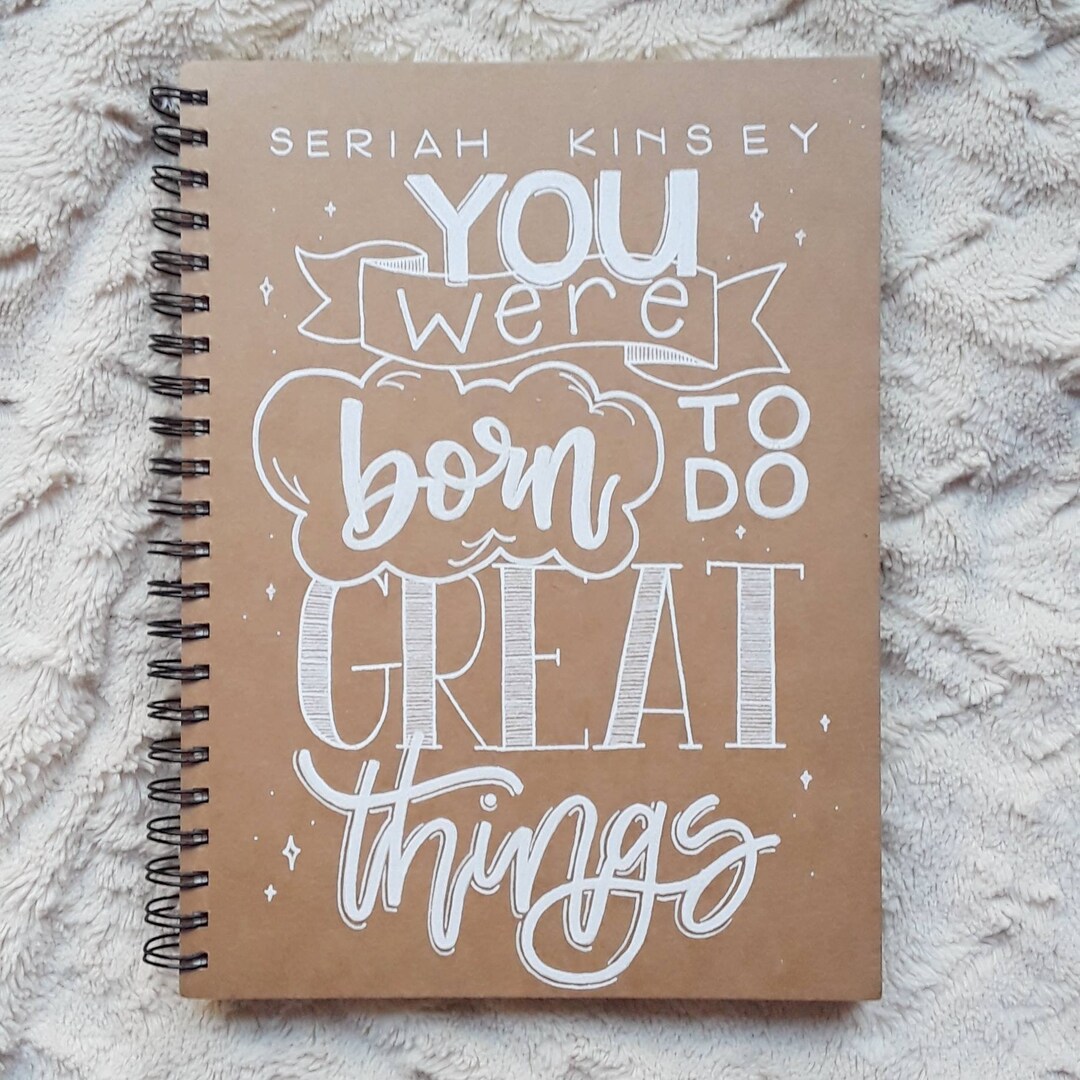 SERIAH KINSEY
YOU
were
born
TO
DO
GREAT
things